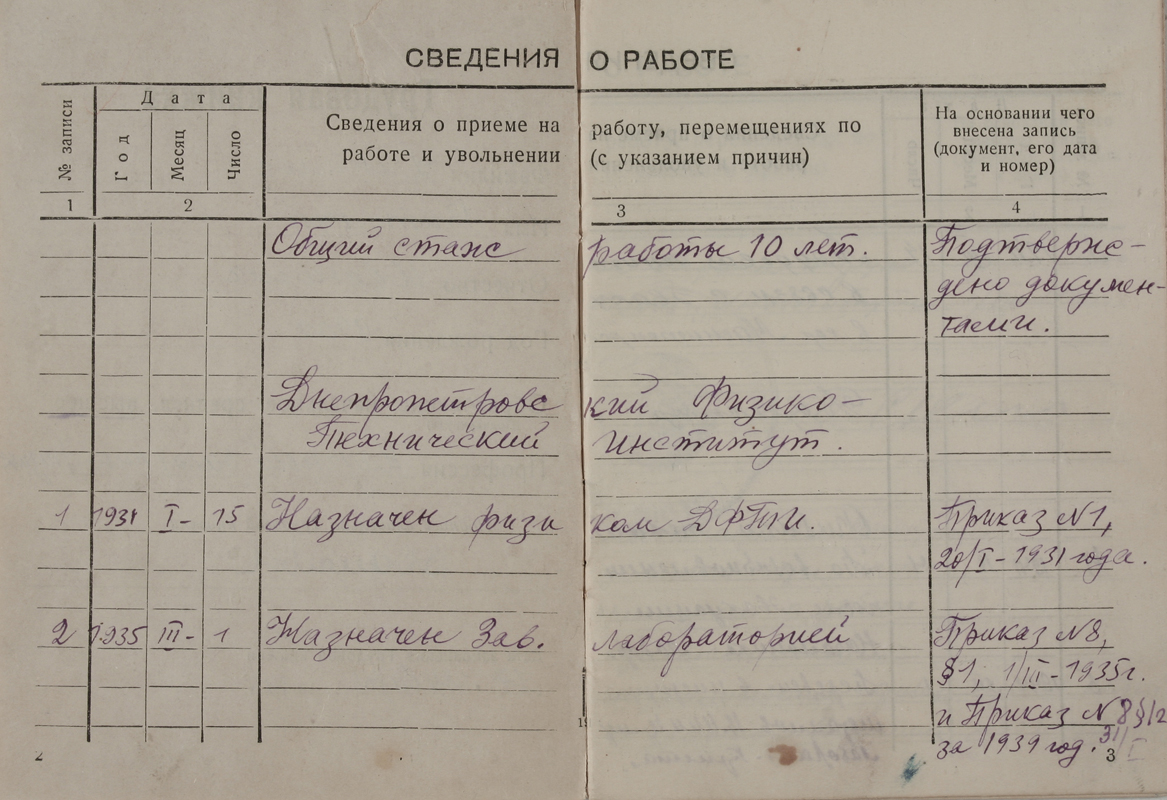 СВЕДЕНИЯ О РАБОТЕ
№ записи
Дата
Год
Месяц
Число
Сведения о приеме на работу, перемещениях по
работе и увольнении (с указанием причин)
На основании чего
внесена запись
(документ, его дата
и номер)
1 2 3 4
Общий стаж работы 10 лет. Подтверж-
дено докумен-
тами.
Днепропетровский Физико-
Технический институт.
1 1931 I- 15 Назначен физиком ДФТИ. Приказ N1,
20/I-1931 года.
2 1935 III- 1 Назначен Зав. лабораторией Приказ N8,
§1, 1/III-1935г.
и Приказ N8 §12
за 1939 год. 31/I
2 3